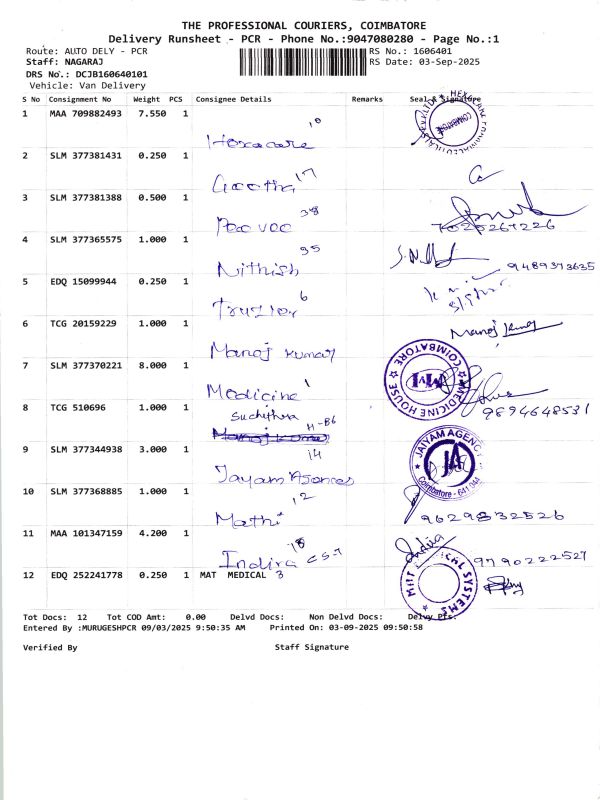 THE PROFESSIONAL COURIERS, COIMBATORE
Delivery Runsheet - PCR - Phone No.:9047080280 - Page No.:1
Route: AUTO DELY - PCR RS No.: 1606401
Staff: NAGARAJ RS Date: 03-Sep-2025
DRS No.: DCJB160640101
Vehicle: Van Delivery
S No Consignment No Weight PCS Consignee Details Remarks Seal & Signature
1 MAA 709882493 7.550 1
10
Hexacare
COIMBATORE
2 SLM 377381431 0.250 1
Geetha 17
3 SLM 377381388 0.500 1
38
Poo voo
4 SLM 377365575 1.000 1
35
Nithish 9489373635
5 EDQ 15099944 0.250 1
6
6 TCG 20159229 1.000 1
Manoj Kumar
Manoj Kumar
7 SLM 377370221 8.000 1
Medicine 1
MEDICINE HOUSE COIMBATORE
MM
8 TCG 510696 1.000 1
Suchithra
9894648531
Manoj Kumar H-B6
9 SLM 377344938 3.000 1
14
Jayam Agences
JAIYAM AGENCY
JA
Coimbatore - 641 044
10 SLM 377368885 1.000 1
12
Mathi 9629832526
11 MAA 101347159 4.200 1
18
Indira CST
Indira 9790222527
12 EDQ 252241778 0.250 1 MAT MEDICAL 3
MAT MEDICAL SYSTEMS
Tot Docs: 12 Tot COD Amt: 0.00 Delvd Docs: Non Delvd Docs: Delvy Pfs:
Entered By :MURUGESHPCR 09/03/2025 9:50:35 AM Printed On: 03-09-2025 09:50:58
Verified By Staff Signature